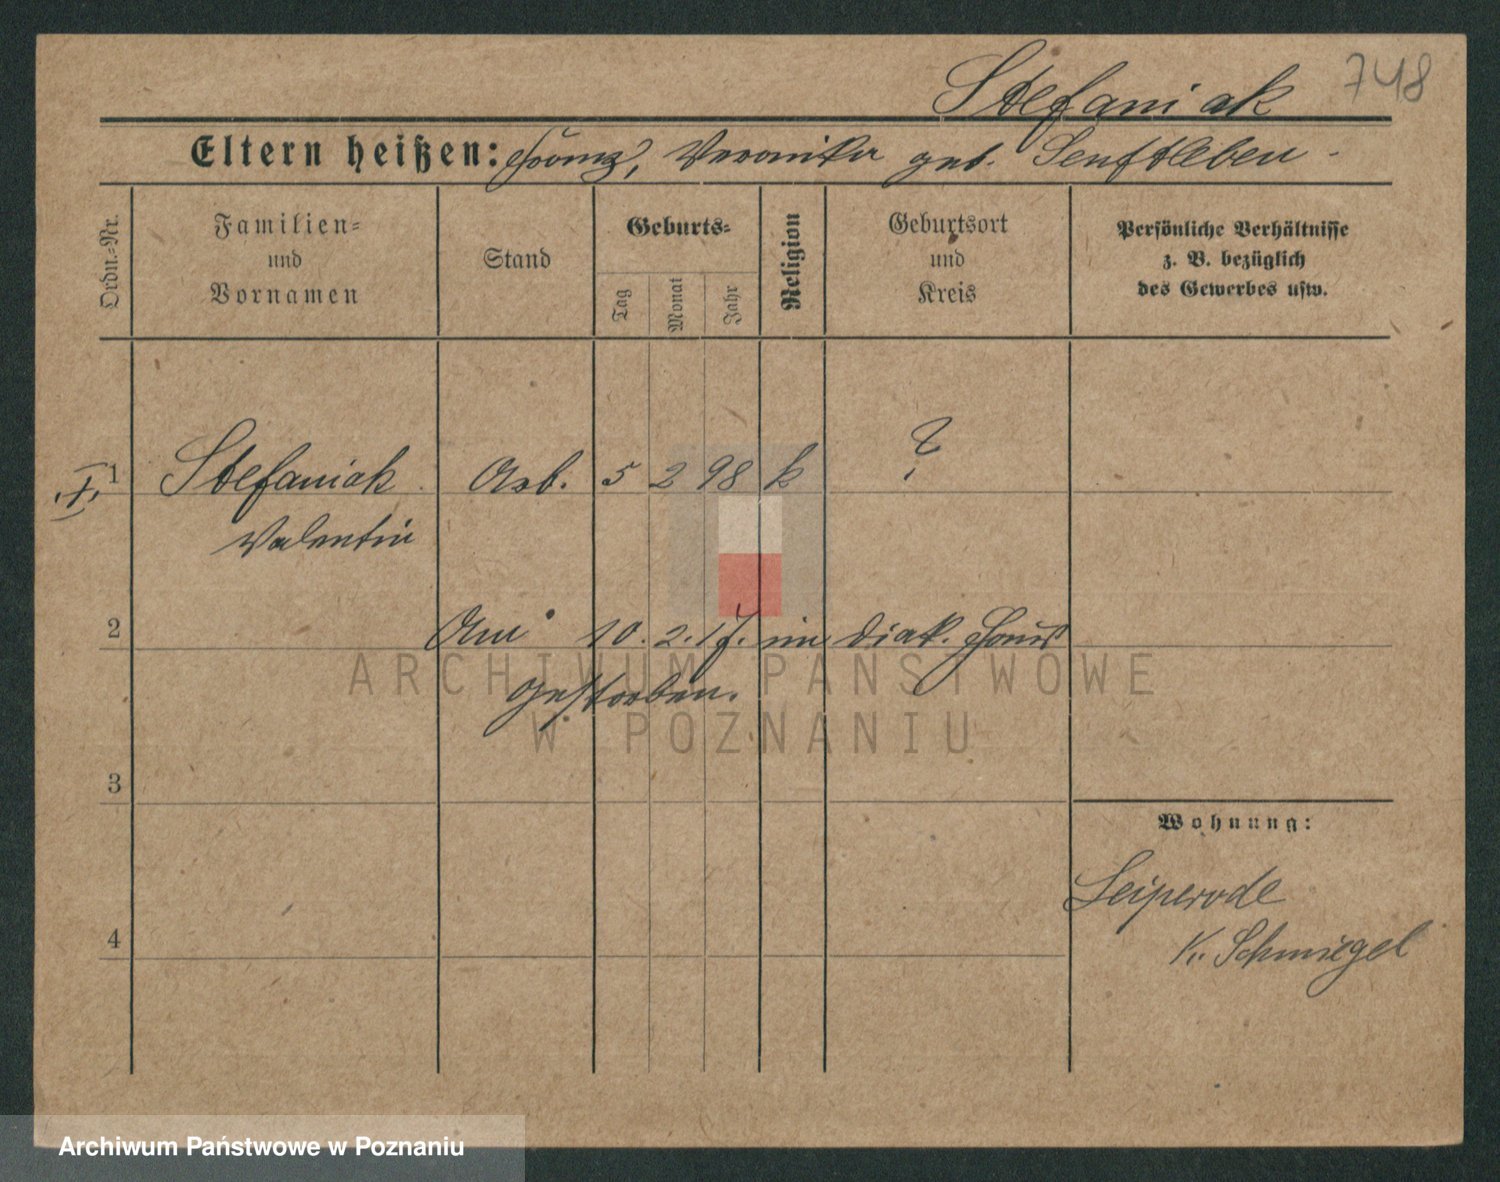 Stefaniak 748
Eltern heißen: Franz, Veronika geb. Senftleben.
Ordn.-Nr.
Familien-
und
Vornamen
Stand
Geburts-
Tag
Monat
Jahr
Religion
Geburtsort
und
Kreis
Persönliche Verhältnisse
z. B. bezüglich
des Gewerbes usw.
1 Stefaniak Arb. 5 2 98 k ?
Valentin
2 Am 10. 2. 17. im Diak. Haus
gestorben.
ARCHIWUM PAŃSTWOWE
W POZNANIU
3
Wohnung:
Leiperode
4
K. Schmiegel
Archiwum Państwowe w Poznaniu